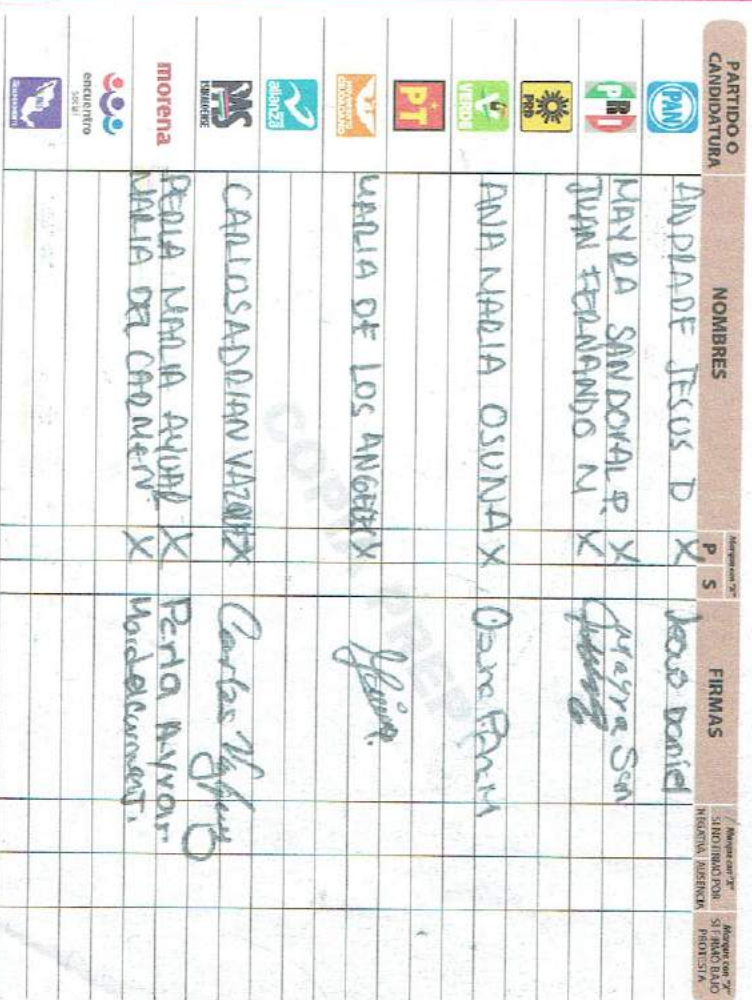 PARTIDO O CANDIDATURA
NOMBRES
Marque con "X"
P S
FIRMAS
Marque con "X"
SI NO FIRMÓ POR
NEGATIVA AUSENCIA
Marque con "X"
SI FIRMÓ BAJO PROTESTA
PAN ANDRADE JESUS D X Jesus Daniel
PRI MAYRA SANDOVAL P. X Mayra San
JUAN FERNANDO M X
PRD
VERDE ANA MARIA OSUNA X
PT
MOVIMIENTO CIUDADANO MARIA DE LOS ANGELES X
alianza
PMS CARLOS ADRIAN VAZQUEZ X Carlos
morena PERLA MARIA AYVAR X Perla Ayvar
MARIA DEL CARMEN X
encuentro social
COPIA PREP